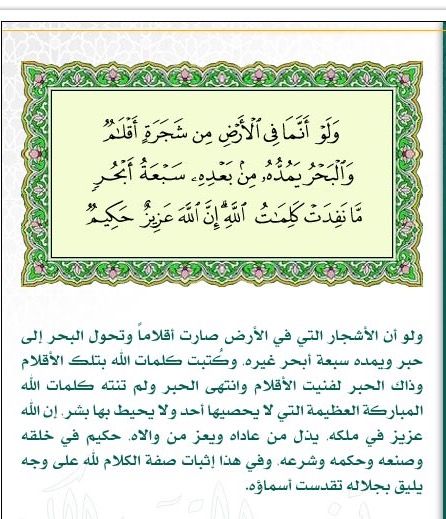 وَلَوْ أَنَّمَا فِي الْأَرْضِ مِن شَجَرَةٍ أَقْلَٰمٌ
وَالْبَحْرُ يَمُدُّهُۥ مِنۢ بَعْدِهِۦ سَبْعَةُ أَبْحُرٍ
مَّا نَفِدَتْ كَلِمَٰتُ اللَّهِ ۗ إِنَّ اللَّهَ عَزِيزٌ حَكِيمٌ
ولو أن الأشجار التي في الأرض صارت أقلاماً وتحول البحر إلى
حبر ويمده سبعة أبحر غيره، وكُتبت كلمات الله بتلك الأقلام
وذاك الحبر لفنيت الأقلام وانتهى الحبر ولم تنته كلمات الله
المباركة العظيمة التي لا يحصيها أحد ولا يحيط بها بشر. إن الله
عزيز في ملكه، يذل من عاداه ويعز من والاه، حكيم في خلقه
وصنعه وحكمه وشرعه. وفي هذا إثبات صفة الكلام لله على وجه
يليق بجلاله تقدست أسماؤه.